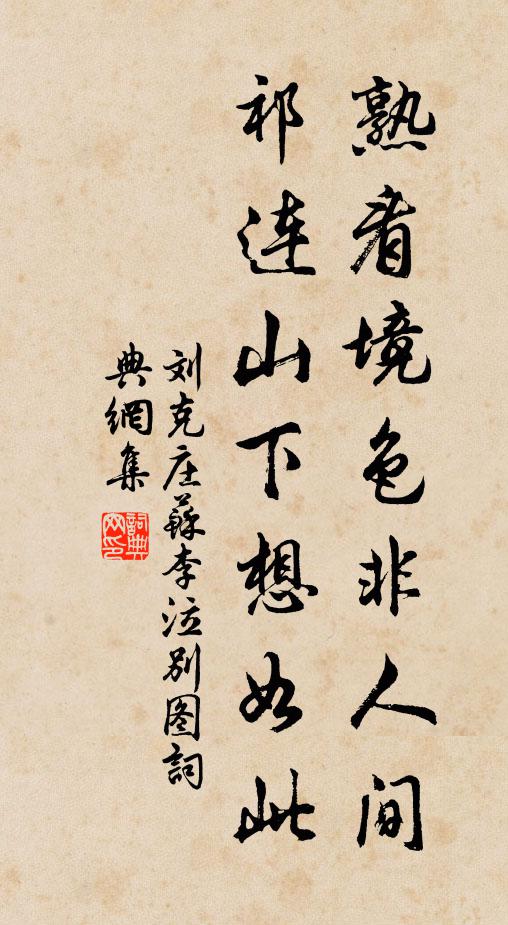 熟看境色非人间
祁连山下想如此
刘克庄蘇李泣别图詞
典網集
詞典
网印